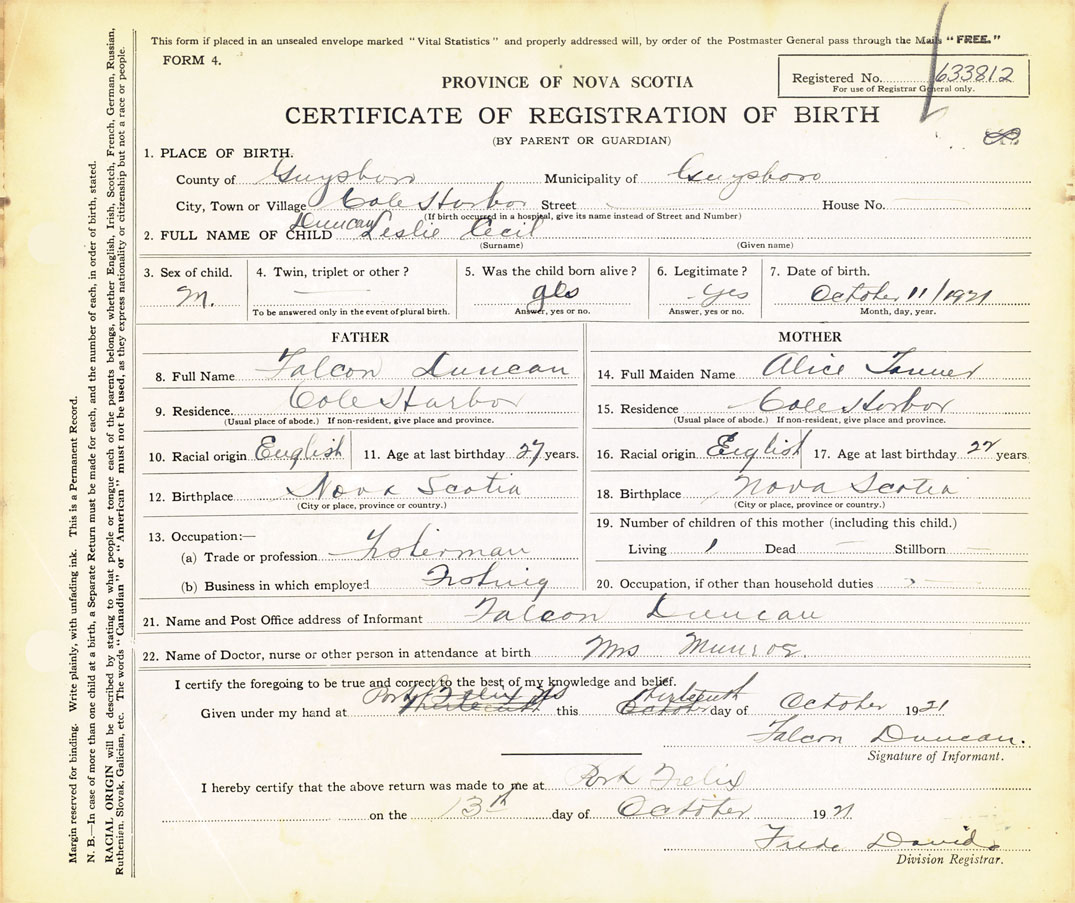 This form if placed in an unsealed envelope marked "Vital Statistics" and properly addressed will, by order of the Postmaster General pass through the Mails "FREE."
FORM 4.
Registered No. 633812
For use of Registrar General only.
PROVINCE OF NOVA SCOTIA
CERTIFICATE OF REGISTRATION OF BIRTH
(BY PARENT OR GUARDIAN)
1. PLACE OF BIRTH.
County of Guysboro Municipality of Guysboro
City, Town or Village Cole Harbor Street House No.
(If birth occurred in a hospital, give its name instead of Street and Number)
2. FULL NAME OF CHILD Duncan Leslie Cecil
(Surname) (Given name)
3. Sex of child. 4. Twin, triplet or other? 5. Was the child born alive? 6. Legitimate? 7. Date of birth.
M. yes yes October 11/1921
To be answered only in the event of plural birth. Answer, yes or no. Answer, yes or no. Month, day, year.
FATHER
8. Full Name Falcon Duncan
9. Residence. Cole Harbor
(Usual place of abode.) If non-resident, give place and province.
10. Racial origin English 11. Age at last birthday 27 years.
12. Birthplace Nova Scotia
(City or place, province or country.)
13. Occupation:—
(a) Trade or profession Fisherman
(b) Business in which employed Fishing
MOTHER
14. Full Maiden Name Alice Tanner
15. Residence Cole Harbor
(Usual place of abode.) If non-resident, give place and province.
16. Racial origin English 17. Age at last birthday 22 years.
18. Birthplace Nova Scotia
(City or place, province or country.)
19. Number of children of this mother (including this child.)
Living 1 Dead — Stillborn —
20. Occupation, if other than household duties
21. Name and Post Office address of Informant Falcon Duncan
22. Name of Doctor, nurse or other person in attendance at birth Mrs Munroe.
I certify the foregoing to be true and correct to the best of my knowledge and belief.
Given under my hand at Port Felix NS this thirteenth day of October 1921
Falcon Duncan.
Signature of Informant.
I hereby certify that the above return was made to me at Port Felix
on the 13th day of October 1921
Frede Davids
Division Registrar.
Margin reserved for binding. Write plainly, with unfading ink. This is a Permanent Record.
N. B.—In case of more than one child at a birth, a Separate Return must be made for each, and the number of each, in order of birth, stated.
RACIAL ORIGIN will be described by stating to what people or tongue each of the parents belongs, whether English, Irish, Scotch, French, German, Russian,
Ruthenian, Slovak, Galician, etc. The words "Canadian" or "American" must not be used, as they express nationality or citizenship but not a race or people.